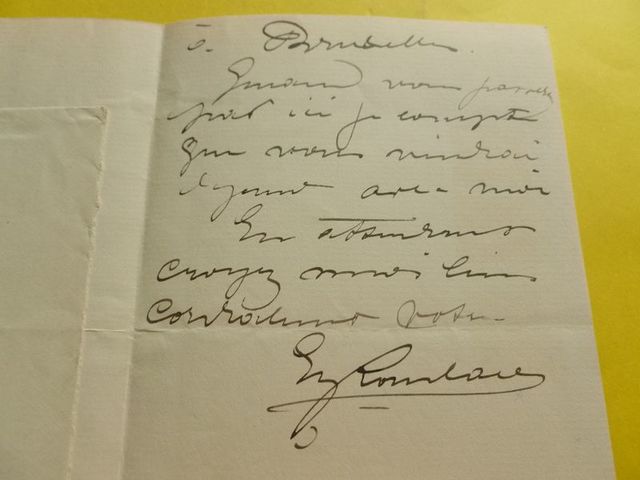 à Bruxelles.
Quand vous passerez
par ici je compte
que vous viendrai
déjeuner avec moi
En attendant
croyez moi bien
cordialement votre